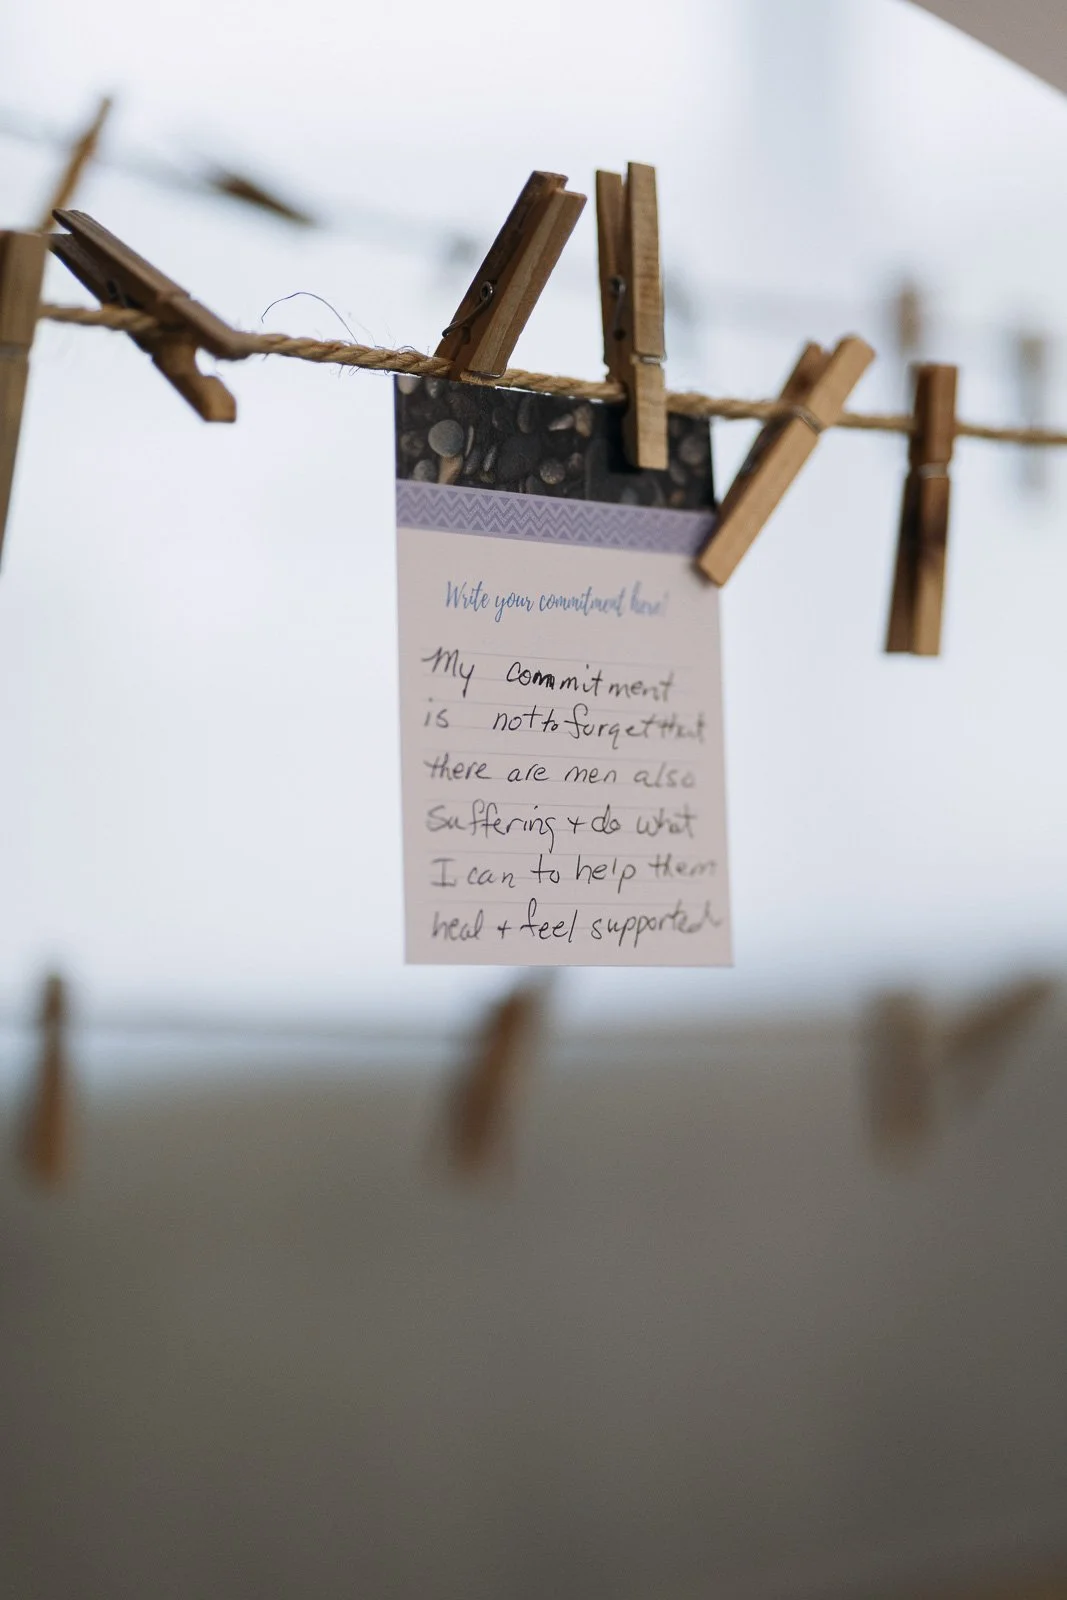 Write your commitment here!
My commitment
is not to forget that
there are men also
suffering + do what
I can to help them
heal + feel supported